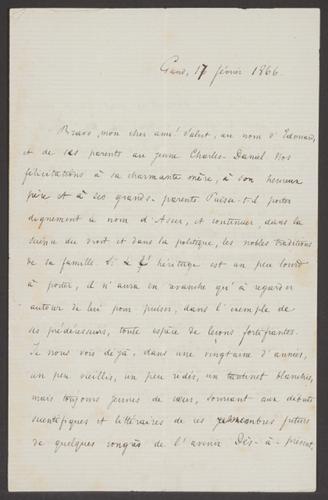 Gand, 17 février 1866
Bravo, mon cher ami! Salut, au nom d'Edouard,
et de ses parents au jeune Charles-Daniel Nos
felicitations à sa charmante mère, à son heureux
père et à ses grands-parents Puisse-t-il porter
dignement le nom d'Asser, et continuer, dans la
science du droit et dans la politique, les nobles traditions
de sa famille Si l'héritage est un peu lourd
à porter, il n'aura en revanche qu'à regarder
autour de lui pour puiser, dans l'exemple de
ses prédécesseurs, toute espèce de leçons fortifiantes.
Je nous vois déjà, dans une vingtaine d'années,
un peu vieillis, un peu ridés, un tantinet blanchis,
mais toujours jeunes de cœur, souriant aux débuts
scientifiques et littéraires de ces membres futurs
de quelques congrès de l'avenir Dès-à-présent,